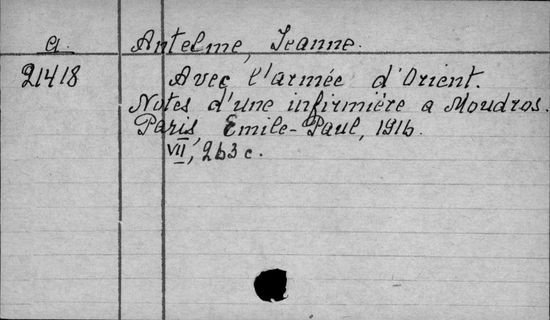 a. Antelme, Jeanne.
21418 Avec l'armée d'Orient.
Notes d'une infirmière a Moudros.
Paris, Emile-Paul, 1916.
VII, 263 c.